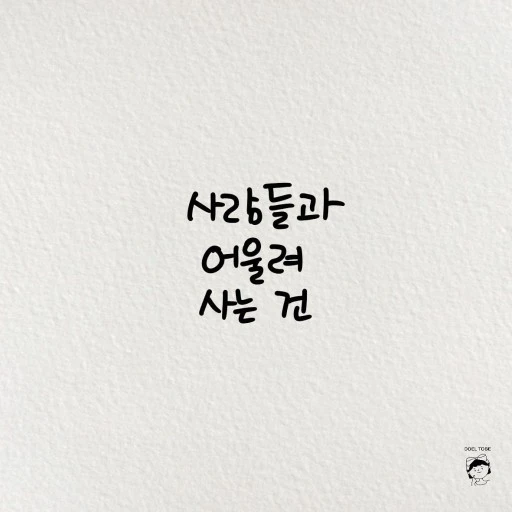 사람들과
어울려
사는 건
TOBE